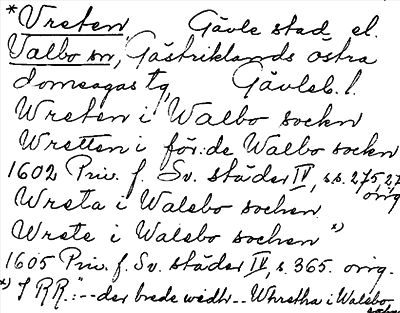 *Vreten, Gävle stad el.
Valbo sn, Gästriklands östra
domsagas tg, Gävleb. l.
Wreten i Walbo socken
Wretten i för:de Walbo socken
1602 Priv. f. Sv. städer IV, s.s. 275, 27
orig
Wreta i Walebo sochen
Wrete i Walebo sochen *)
1605 Priv. f. Sv. städer IV, s. 365. orig.
*) I RR: "-- der brede wedh -- Whretha i Walebo